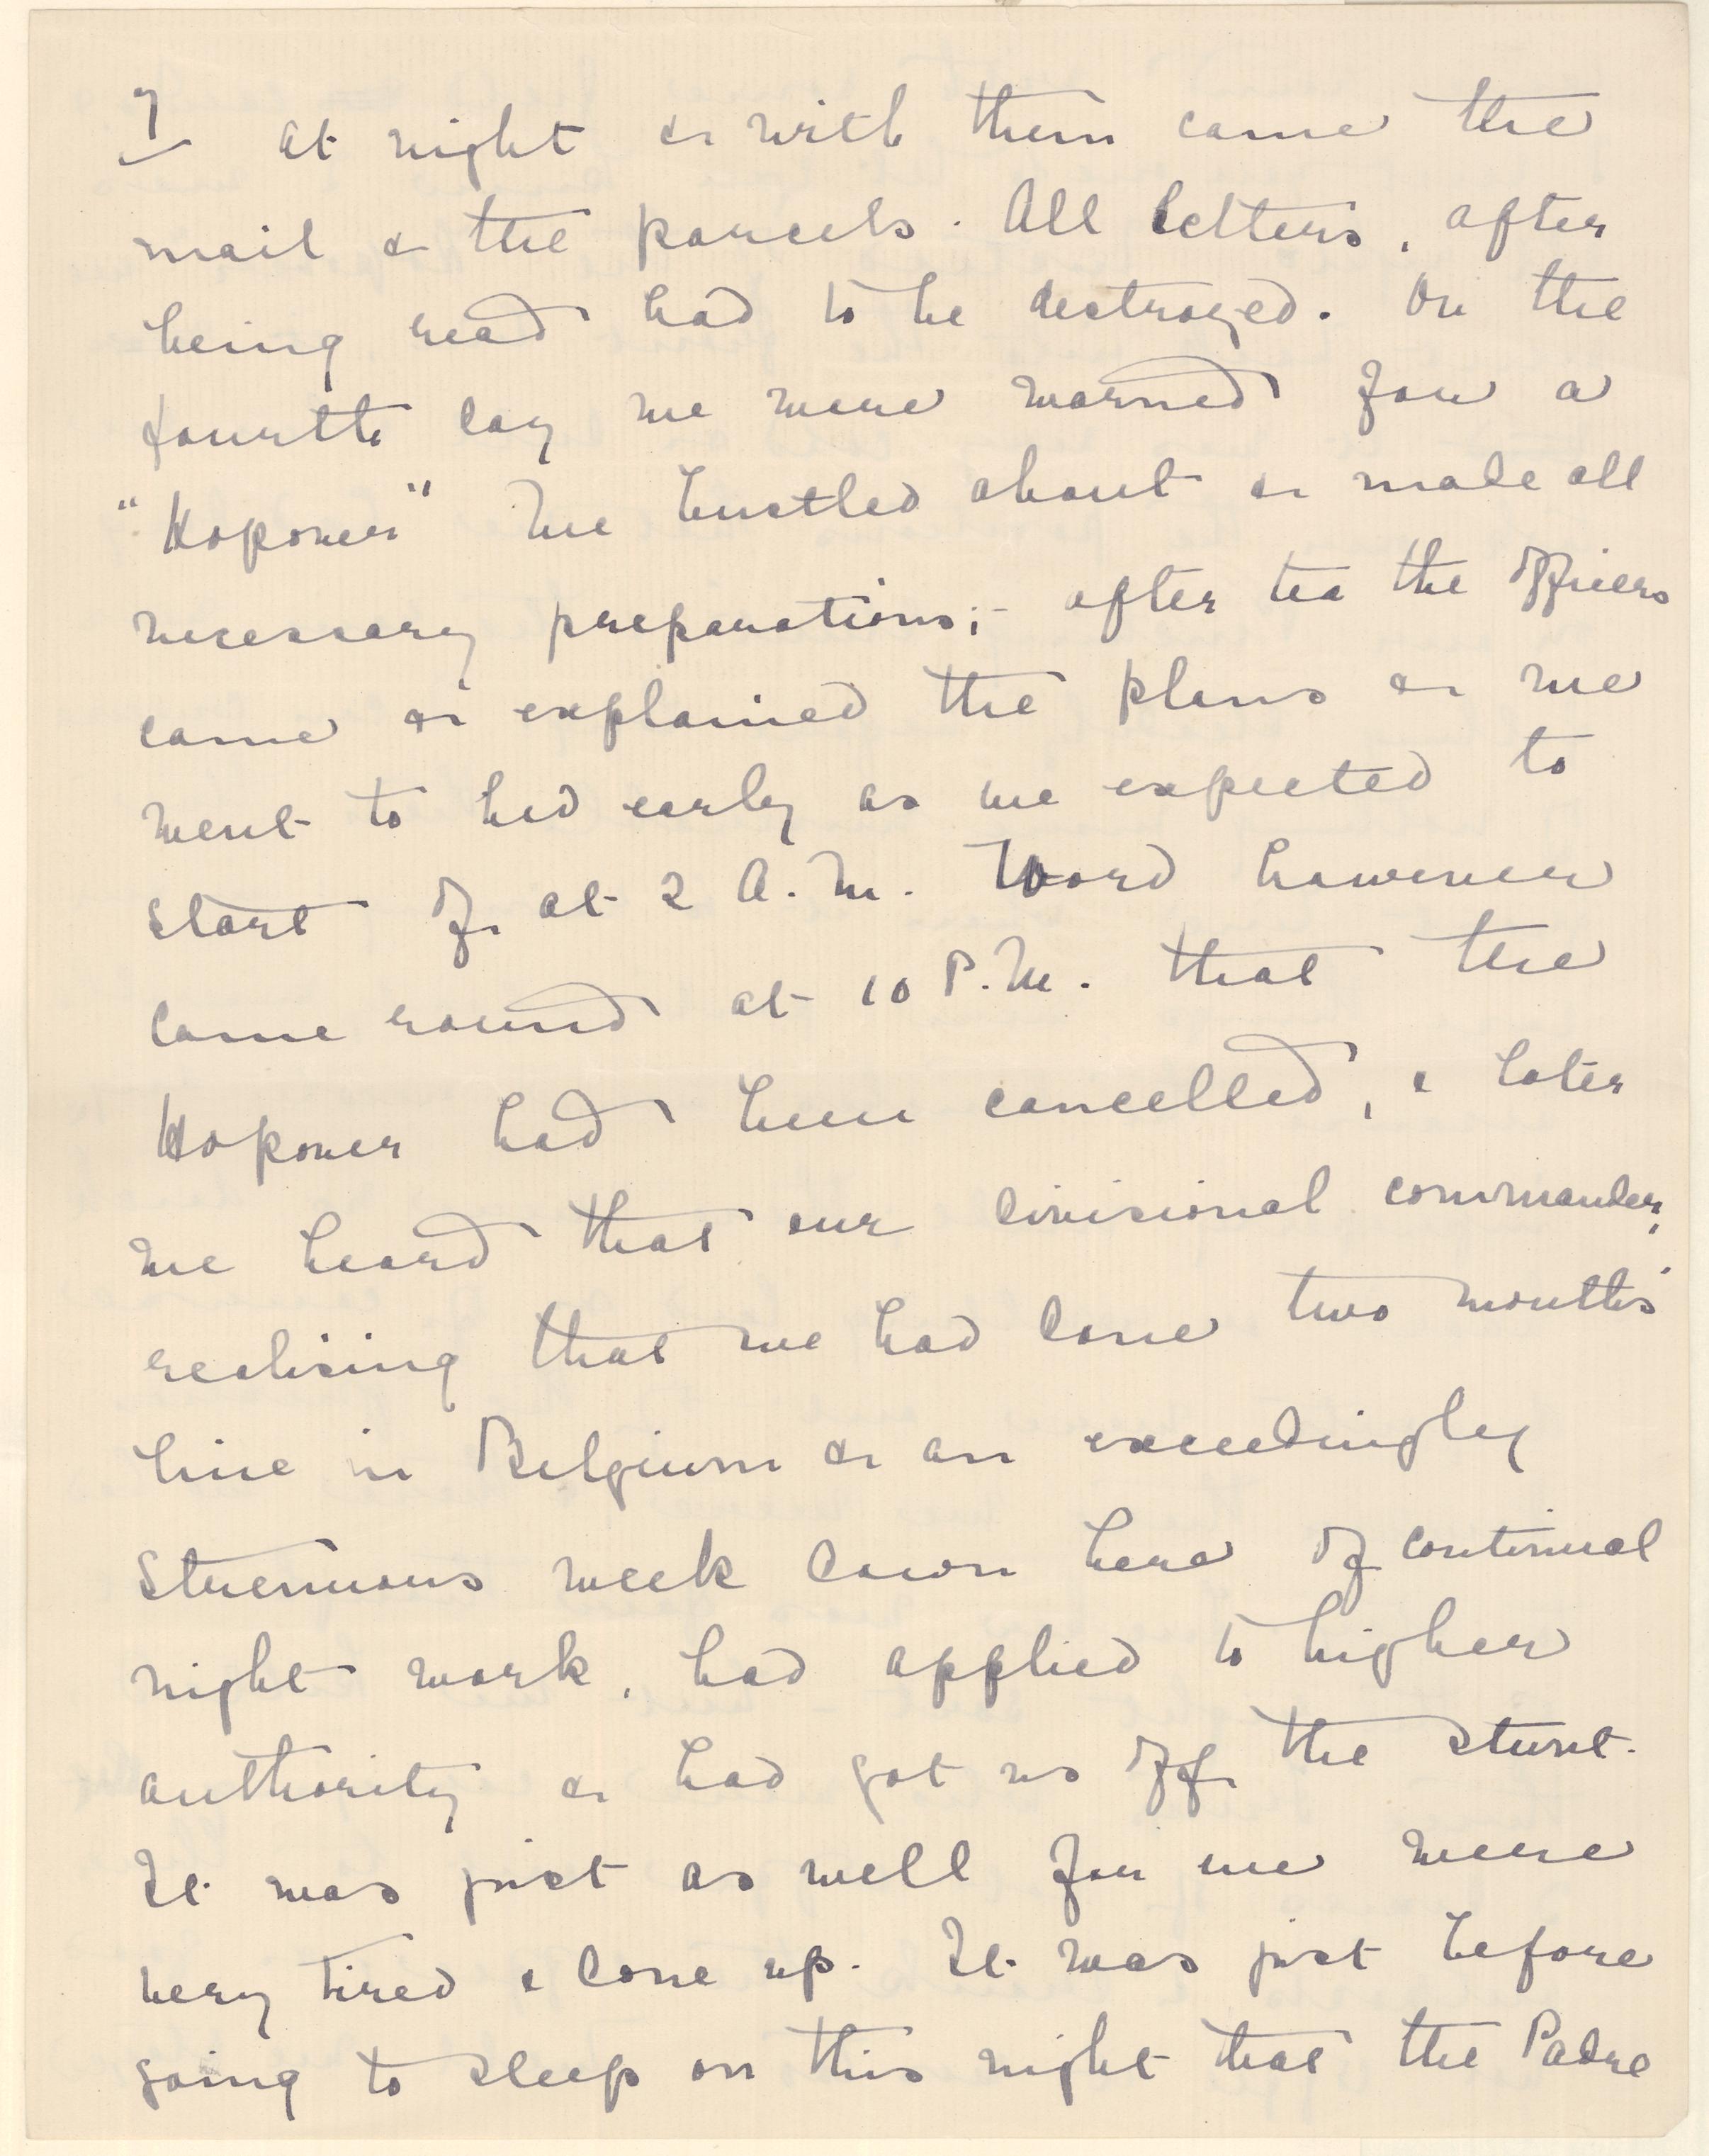 7 at night & with them came the
mail & the parcels. All letters, after
being read had to be destroyed. On the
fourth day we were warned for a
"Hopover" We hustled about & made all
necessary preparations;- after tea the officers
came & explained the plans & we
went to bed early as we expected to
start off at 2 A.M. Word however
came round at 10 P.M. that the
Hopover had been cancelled, & later
we heard that our divisional commander,
realising that we had done two months'
line in Belgium & an exceedingly
strenuous week down here of continual
night work, had applied to higher
authority & had got us off the stunt.
It was just as well for we were
very tired & done up. It was just before
going to sleep on this night that the Padre